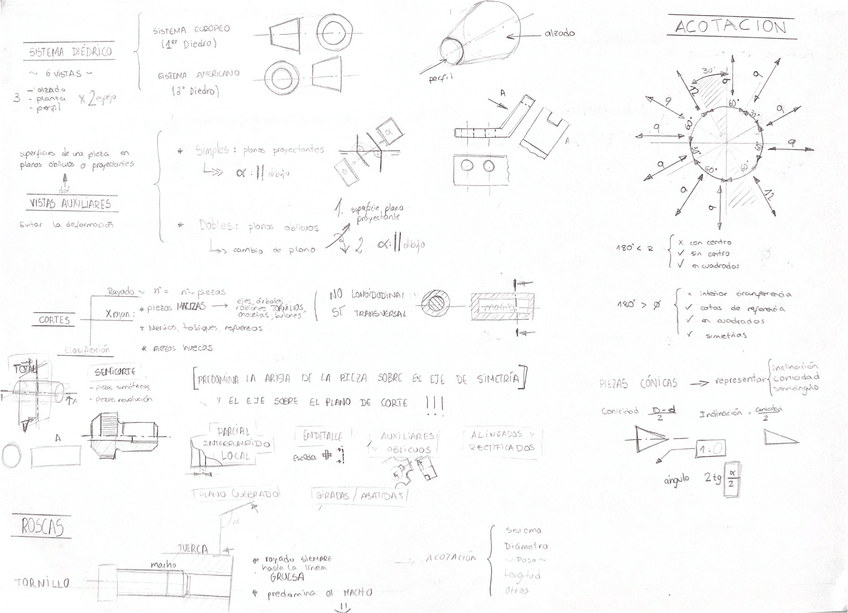 SISTEMA DIÉDRICO
~ 6 VISTAS ~
3
- alzado
- planta
- perfil
x 2
SISTEMA EUROPEO
(1er Diedro)
SISTEMA AMERICANO
(3er Diedro)
alzado
perfil
superficies de una pieza en
planos oblicuos o proyectantes
def.
VISTAS AUXILIARES
Evitar la deformación
* Simples: planos proyectantes
α: || dibujo
* Dobles: planos oblicuos
cambio de plano
1. superficie, plano
proyectante
2 α: || dibujo
A
A
ACOTACION
30°
60°
60°
60°
60°
60°
a
a
a
a
a
a
a
a
12
12
180° < R
x con centro
✓ sin centro
✓ en cuadrados
180° > Ø
x interior transferencia
✓ cotas de referencia
✓ en cuadrados
✓ simetrías
CORTES
Rayado ~ nº = nº piezas
* piezas MACIZAS → ejes, árboles,
TORNILLOS,
NO LONGITUDINAL
SÍ TRANSVERSAL
* Nervios, tabiques, refuerzos
* piezas huecas
Clasificación
TOTAL
A
SEMICORTE
- piezas simétricas
- piezas revolución
[PREDOMINA LA ARISTA DE LA PIEZA SOBRE EL EJE DE SIMETRÍA]
Y EL EJE SOBRE EL PLANO DE CORTE !!!
PARCIAL
INTERRUMPIDO
LOCAL
EN DETALLE
Escala
AUXILIARES
OBLICUOS
ALINEADOS Y
RECTIFICADOS
PLANO QUEBRADO
GIRADAS / ABATIDAS
PIEZAS CÓNICAS → representar
inclinación
conicidad
semiángulo
Conicidad D-d
2
Inclinación = conicidad
2
1:
ángulo 2 tg α
2
ROSCAS
TUERCA
macho
TORNILLO
* rayado SIEMPRE
hasta la línea
GRUESA
* predomina el MACHO
!!
→ ACOTACIÓN
Sistema
Diámetro
~ Paso ~
Longitud
Otros